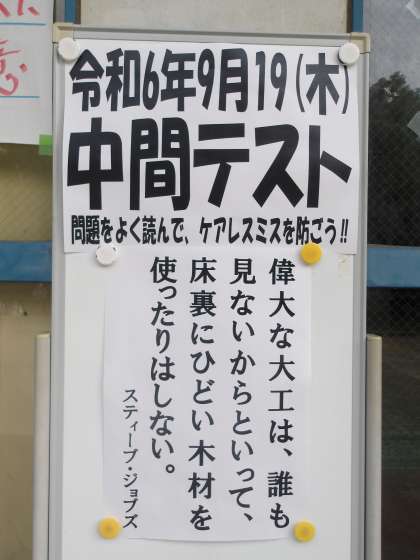 令和6年9月19(木)
中間テスト
問題をよく読んで、ケアレスミスを防ごう!!
偉大な大工は、誰も
見ないからといって、
床裏にひどい木材を
使ったりはしない。
スティーブ・ジョブズ